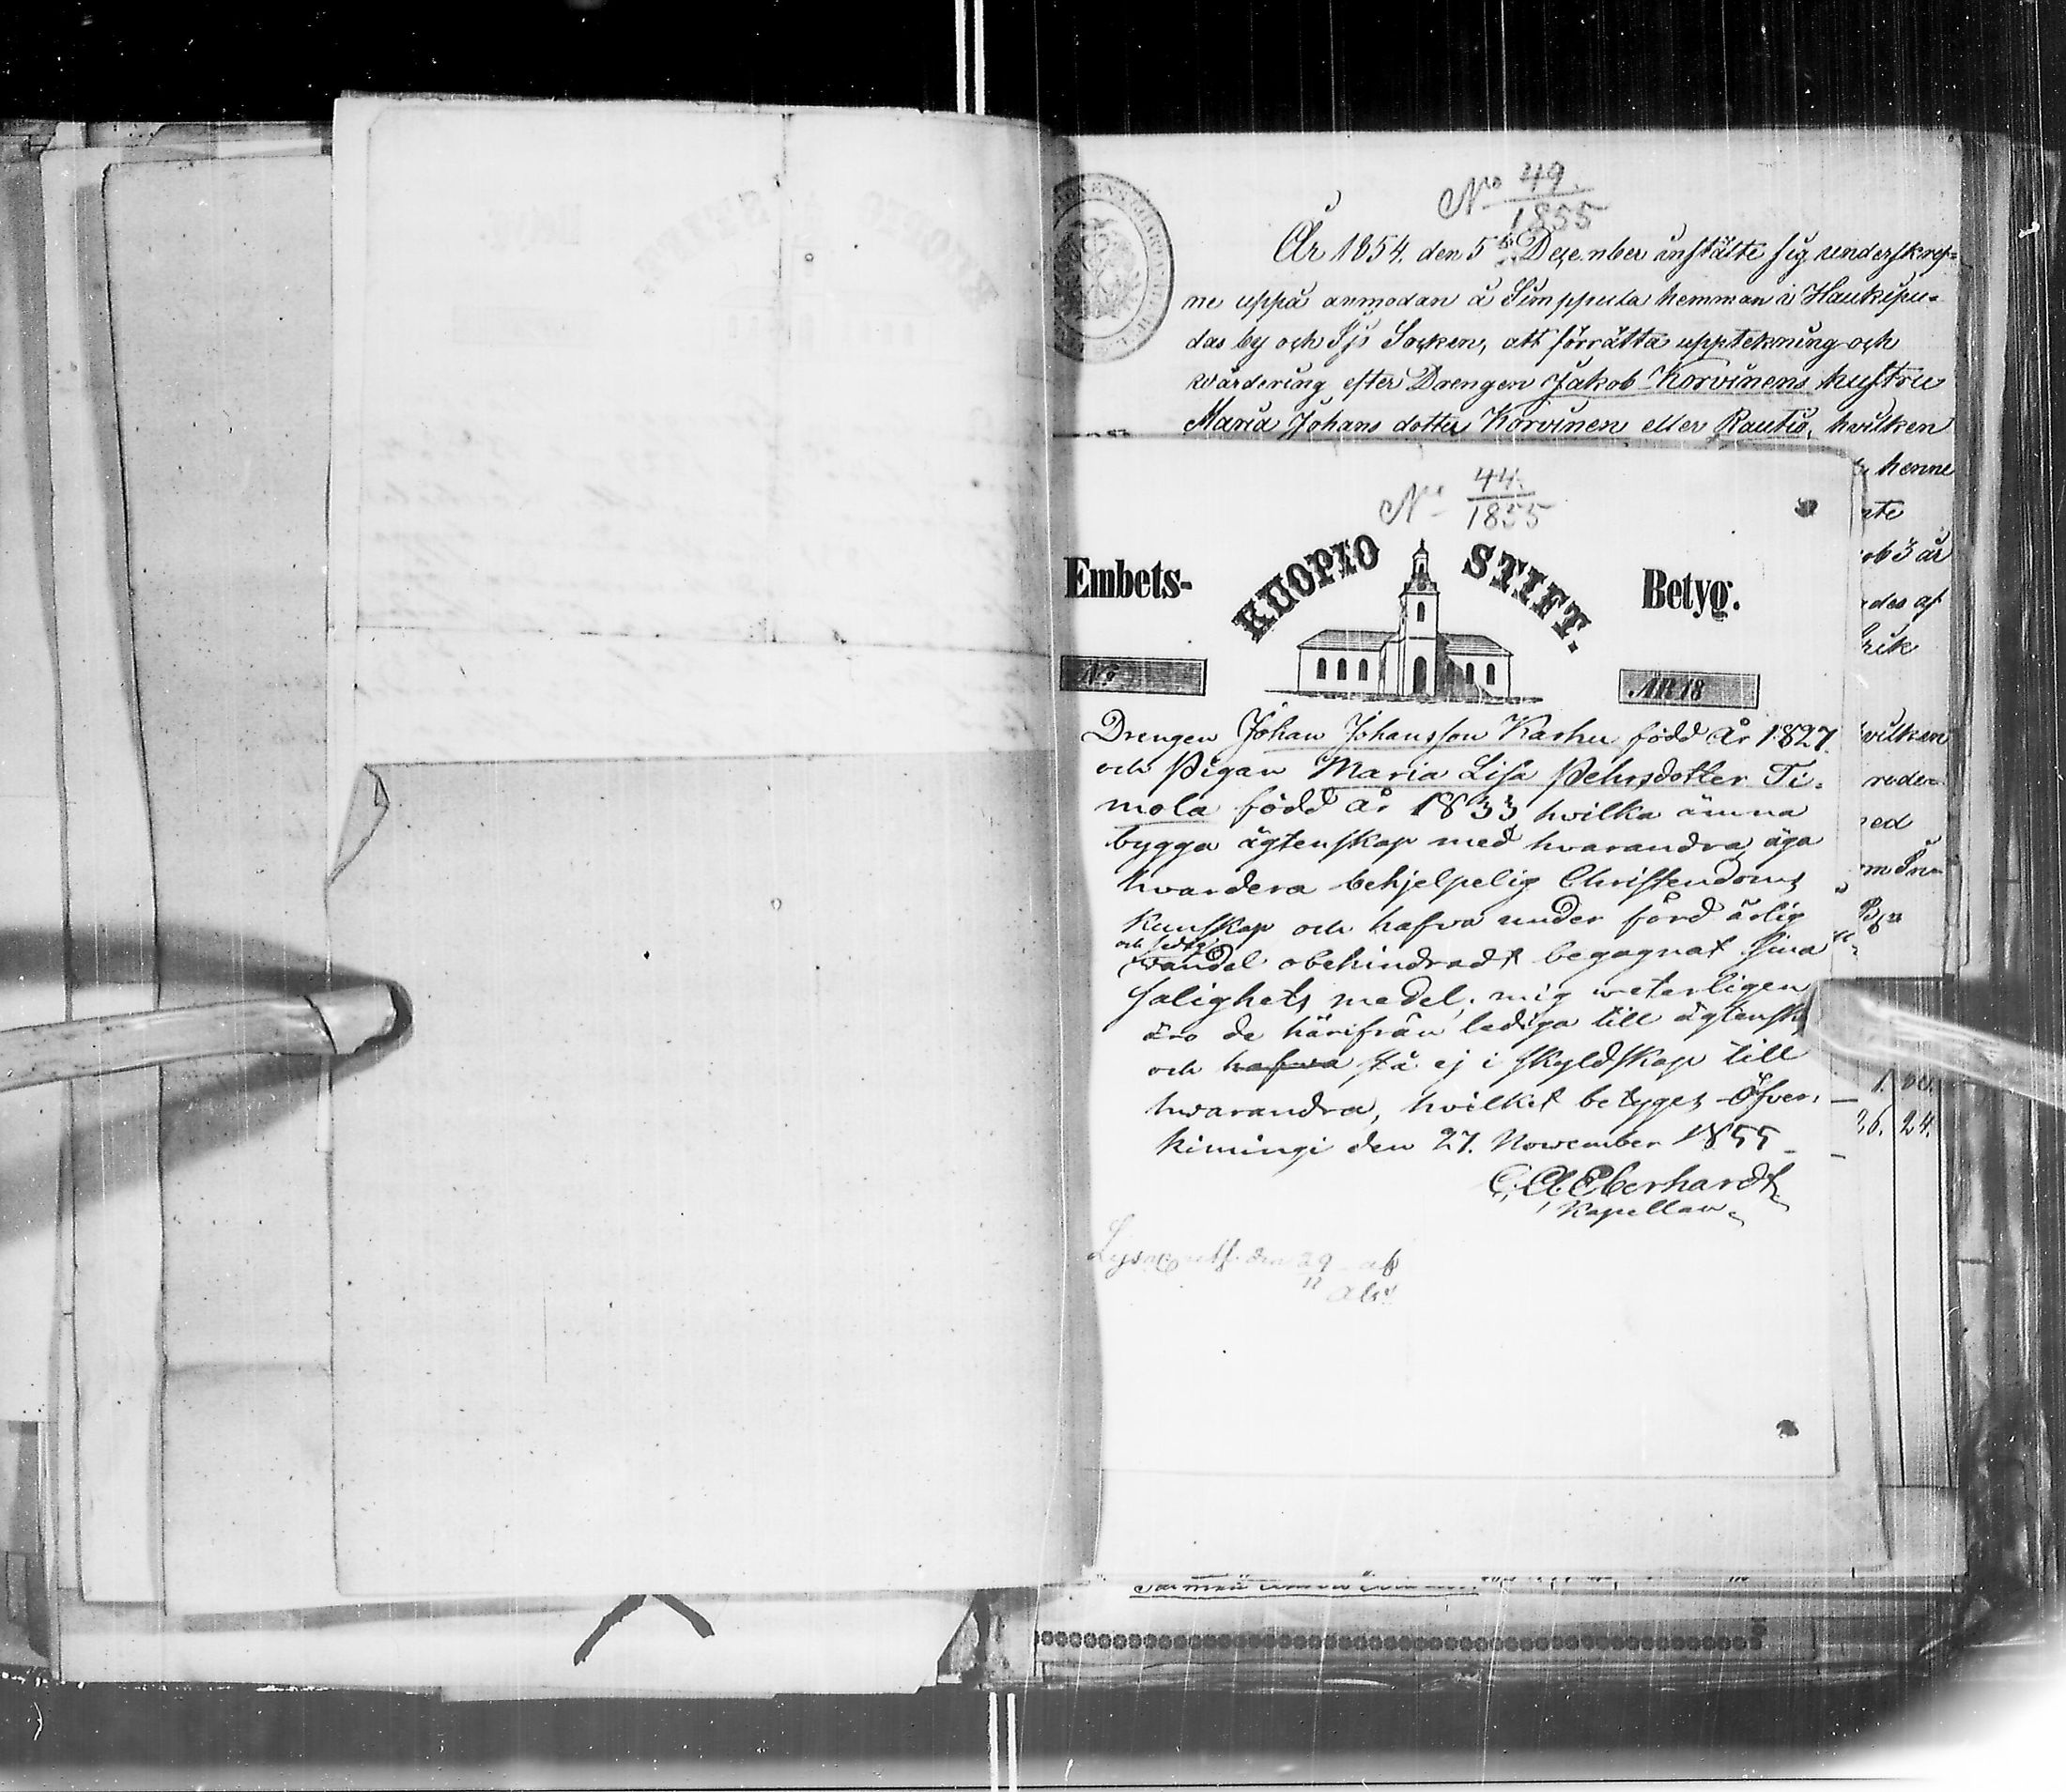 No 49
1855
År 1854. den 5te December instälte sig underskref-
ne uppå anmodan å Simppula hemman i Haukipu-
das by och Ijo Socken, att förrätta uppteckning och
wärdering efter Drengen Jakob Korvinens hustru
Maria Johans dotter Korvinen eller Rautio, hvilken
henne
ob 3 år
des af
vilken
No 44.
1855
Embets-
KUOPIO STIFT.
Betyg.
No
ÅR 18
Drengen Johan Johansson Karhu född år 1827
och Pigan Maria Lisa Pehrsdotter Ti-
mola född år 1833 hvilka ämna
bygga ägtenskap med hvarandra, äga
hvardera behjelpelig Christendoms
kunskap och hafwa under förd ärlig
och sedig
wandel obehindradt begagnat sina
salighets medel; mig weterligen
äro de härifrån lediga till ägtensk
och hafwa stå ej i skyldskap till
hwarandra, hvilket betyges Öfver-
kimingi den 27. November 1855
C. A. Eberhardt
Kapellan
26. 24.
den 29
11